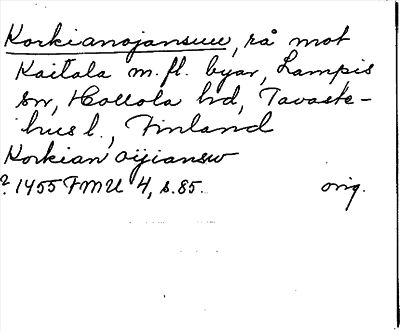 Korkianojansuu, rå mot
Kaitala m.fl. byar, Lampis
sn, Hollola hd, Tavaste-
hus l., Finland
Korkian oijansw
? 1455 FMU 4, s.85. orig.